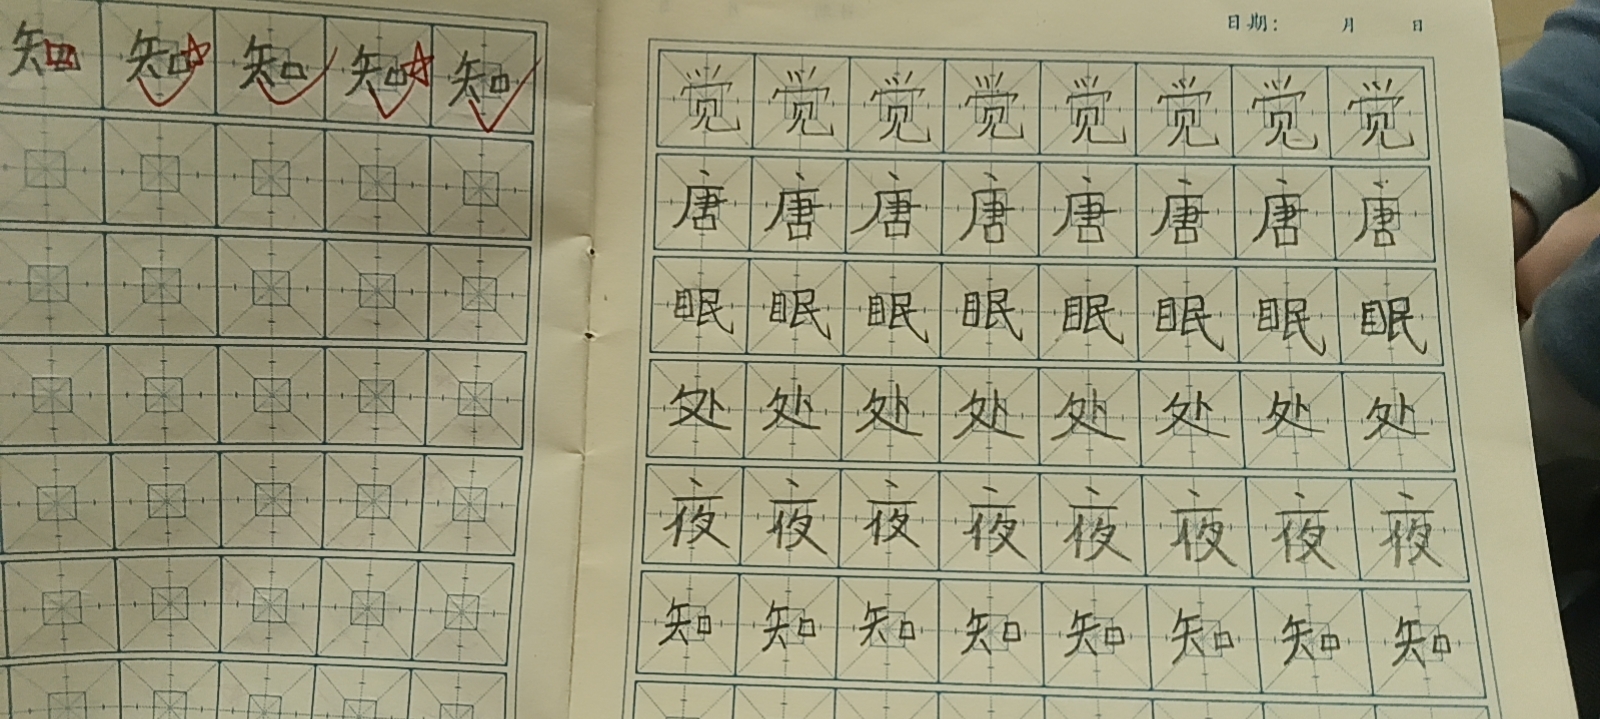 知知知知知
日期： 月 日
觉觉觉觉觉觉觉觉
唐唐唐唐唐唐唐唐
眠眠眠眠眠眠眠眠
处处处处处处处处
夜夜夜夜夜夜夜夜
知知知知知知知知